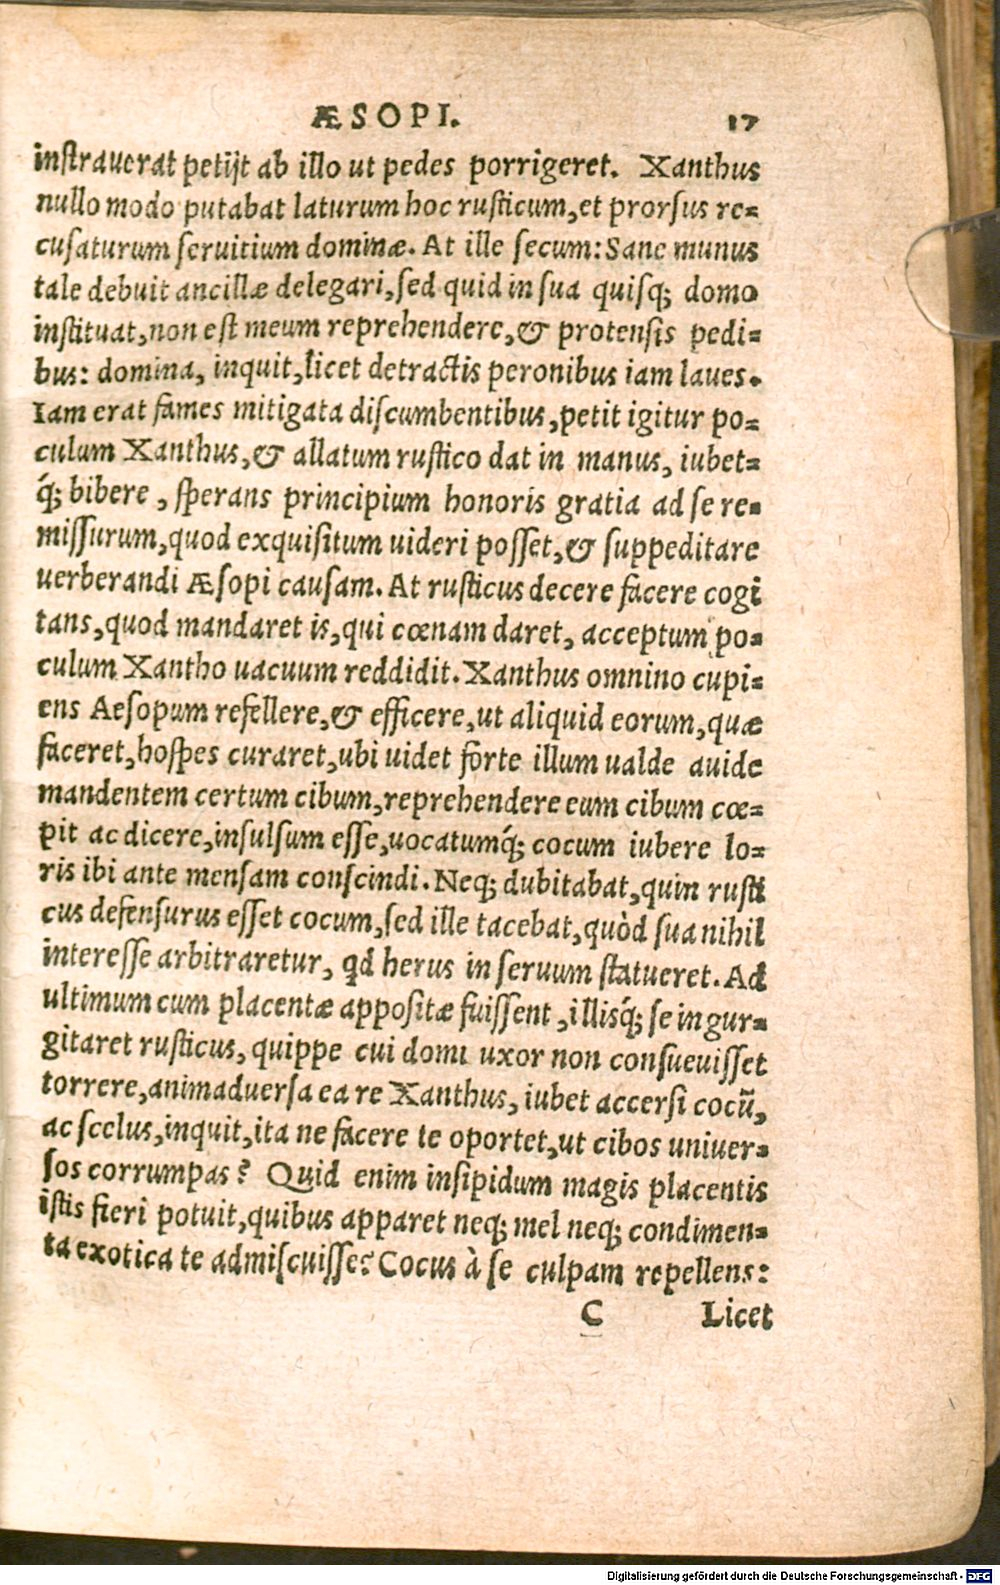 ÆSOPI. 17
inſtrauerat petijt ab illo ut pedes porrigeret. Xanthus
nullo modo putabat laturum hoc ruſticum, et prorſus re=
cuſaturum ſeruitium dominæ. At ille ſecum: Sane munus
tale debuit ancillæ delegari, ſed quid in ſua quiſq; domo
inſtituat, non eſt meum reprehendere, & protenſis pedi=
bus: domina, inquit, licet detractis peronibus iam laues.
Iam erat fames mitigata diſcumbentibus, petit igitur po=
culum Xanthus, & allatum ruſtico dat in manus, iubet=
q́; bibere, ſperans principium honoris gratia ad ſe re=
miſſurum, quod exquiſitum uideri poſſet, & ſuppeditare
uerberandi Æſopi cauſam. At ruſticus decere facere cogi
tans, quod mandaret is, qui cœnam daret, acceptum po=
culum Xantho uacuum reddidit. Xanthus omnino cupi=
ens Aeſopum refellere, & efficere, ut aliquid eorum, quæ
faceret, hoſpes curaret, ubi uidet forte illum ualde auide
mandentem certum cibum, reprehendere eum cibum cœ=
pit ac dicere, inſulſum eſſe, uocatumq́; cocum iubere lo=
ris ibi ante menſam conſcindi. Neq; dubitabat, quin ruſti
cus defenſurus eſſet cocum, ſed ille tacebat, quòd ſua nihil
intereſſe arbitraretur, qd herus in ſeruum ſtatueret. Ad
ultimum cum placentæ appoſitæ fuiſſent, illisq́; ſe ingur=
gitaret ruſticus, quippe cui domi uxor non conſueuiſſet
torrere, animaduerſa ea re Xanthus, iubet accerſi cocũ,
ac ſcelus, inquit, ita ne facere te oportet, ut cibos uniuer=
ſos corrumpas? Quid enim inſipidum magis placentis
iſtis fieri potuit, quibus apparet neq; mel neq; condimen=
ta exotica te admiſcuiſſe? Cocus à ſe culpam repellens:
C Licet
Digitalisierung gefördert durch die Deutsche Forschungsgemeinschaft - DFG